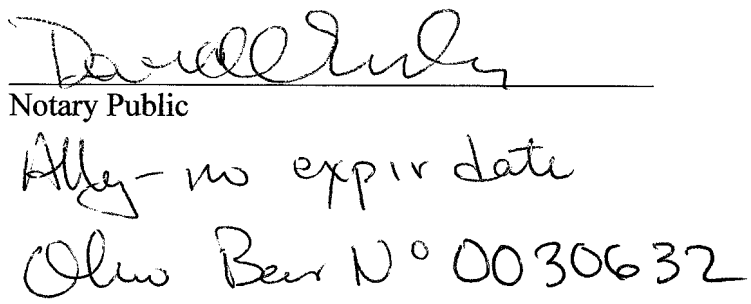 Notary Public
Atty - no expir date
Ohio Bar Nº 0030632